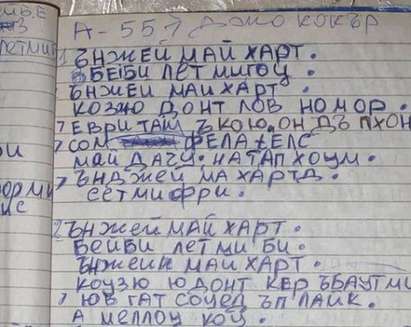 А-557 ДЖО КОКЪР
1 ЪНЖЕЙ МАЙ ХАРТ.
БЕЙБИ ЛЕТ МИ ГОЦ
ЪНЖЕЙ МАЙ ХАРТ.
КОЗЮ ДОНТ ЛОВ НО МОР.
7 ЕВРИ ТАЙМ Ъ КОЮ. ОН ДЪ ПХОН
7 СОМ ФЕЛА ЕЛС
МАЙ ДАЧУ. НА ТАП ХОЦМ.
7 ЪНДЖЕЙ МА ХАРТД.
СЕТ МИ ФРИ.
2 ЪНЖЕЙ МАЙ ХАРТ.
БЕЙБИ ЛЕТ МИ БИ.
ЪНЖЕЙН МАЙ ХАРТ.
КОЦЗЮ Ю ДОНТ КЕР ЪБАУТ МИ
7 ЮВ ГАТ СОЦЕЛ ЪП ЛАЙК.
А МЕЛЛОЦ КОЦ.